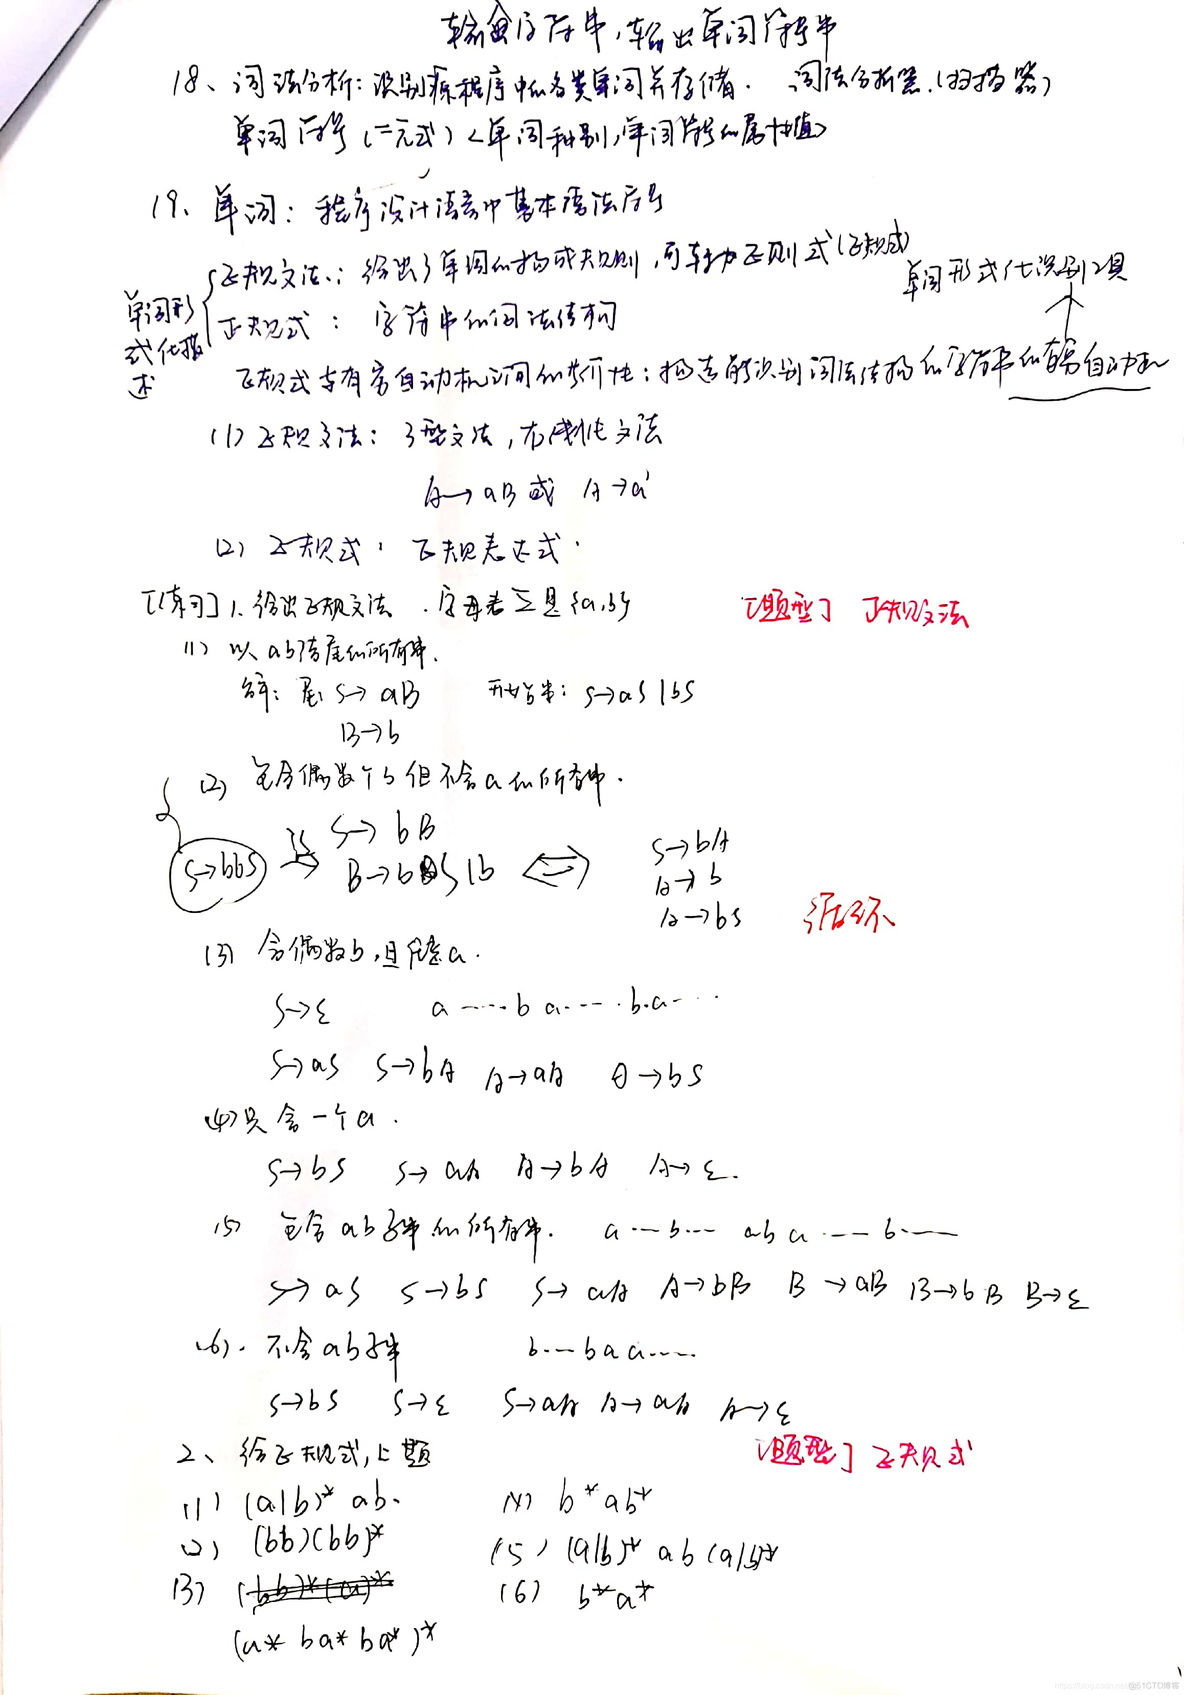 输入字符串,输出单词符号串
18、词法分析:识别源程序中的各类单词并存储. 词法分析器.(扫描器)
单词符号(二元式)<单词种别,单词符号的属性值>
19、单词:程序设计语言中基本语法符号
单词形式化描述
正规文法.:给出了单词的构成规则,可转为正则式(正规式)
正规式: 字符串的词法结构
单词形式化识别工具
正规式与有穷自动机之间的等价性:构造能识别词法结构的字符串的有穷自动机
(1)正规文法:3型文法,右线性文法
A→aB或 A→a
(2) 正规式: 正规表达式.
[练习]1.给出正规文法.字母表Σ是{a,b} [题型] 正规文法
(1) 以ab结尾的所有串.
解:尾:S→aB 开始串:S→aS|bS
B→b
(2) 包含偶数个b但不含a的所有串.
S→bbS
S→bB
B→bS|b
S→bA
A→b
A→bS
循环
(3) 含偶数b,且任意a.
S→ε a-----b a-----b.a-...
S→aS S→bA A→aA A→bS
(4)只含一个a.
S→bS S→aA A→bA A→ε.
(5) 包含ab子串的所有串. a---b--- ab a----b----
S→aS S→bS S→aA A→bB B→aB B→bB B→ε
(6). 不含ab子串 b---ba a----
S→bS S→ε S→aA A→aA A→ε
2、给正规式,上题 [题型] 正规式
(1) (a|b)* ab. (4) b*ab*
(2) (bb)(bb)* (5) (a|b)* ab (a|b)*
(3) (bb)*(a)* (6) b*a*
(a* ba* ba*)*
https://blog.csdn.net@51CTO博客